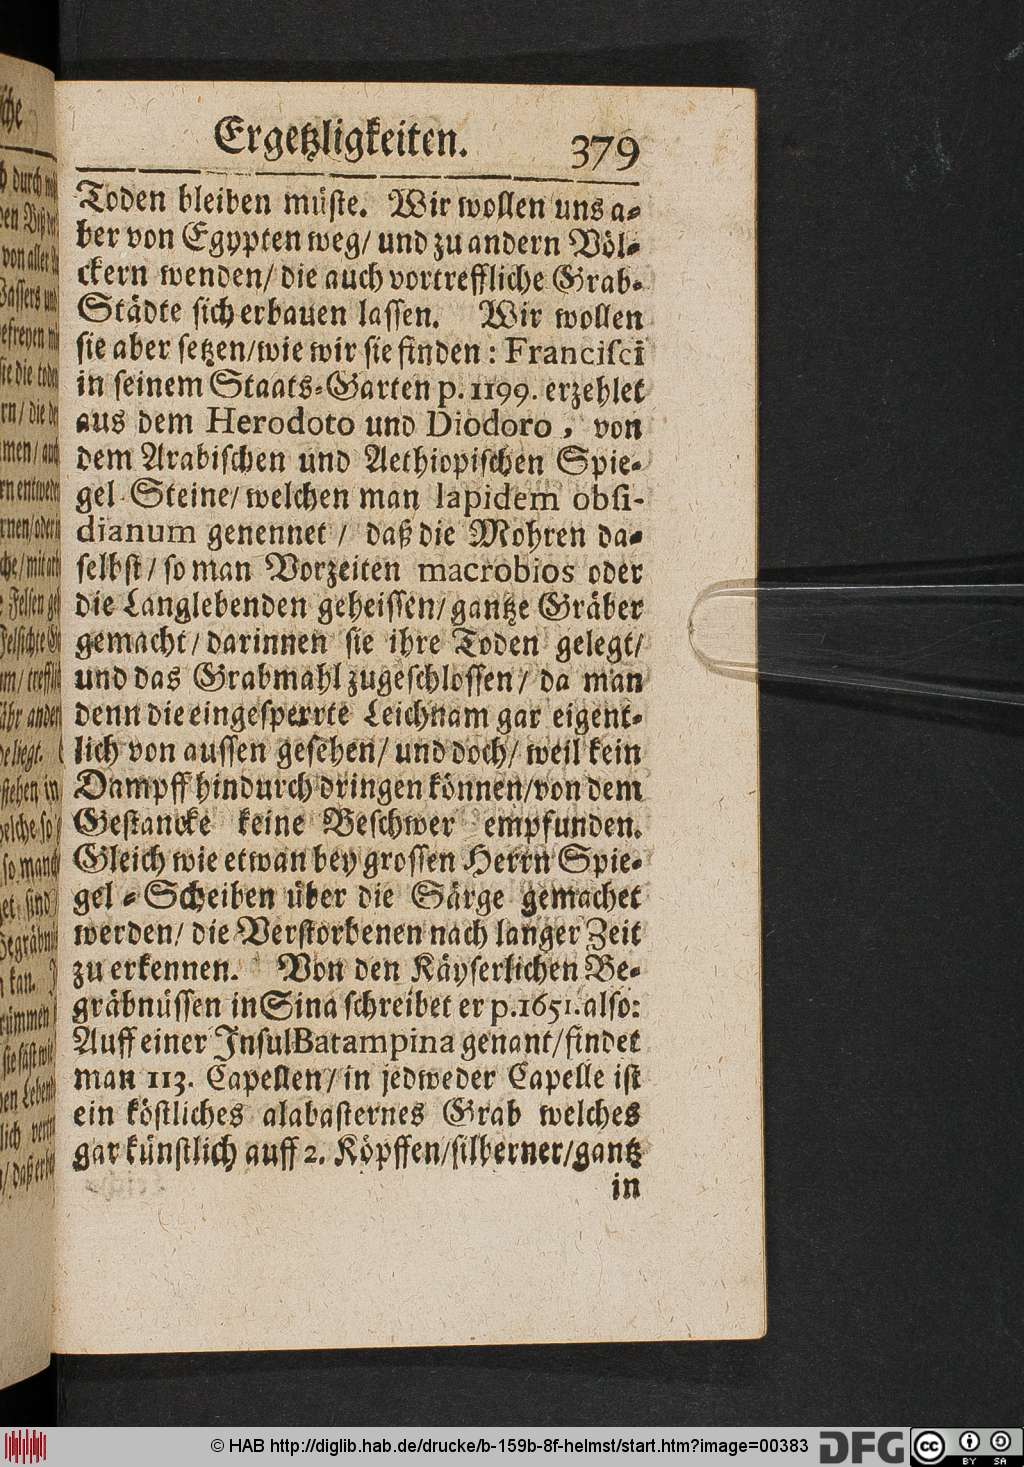 Ergetzligkeiten. 379
Toden bleiben müste. Wir wollen uns a-
ber von Egypten weg/ und zu andern Völ-
ckern wenden/ die auch vortreffliche Grab-
Städte sich erbauen lassen. Wir wollen
sie aber setzen/ wie wir sie finden: Francisci
in seinem Staats-Garten p. 1199. erzehlet
aus dem Herodoto und Diodoro, von
dem Arabischen und Aethiopischen Spie-
gel Steine/ welchen man lapidem obsi-
dianum genennet/ daß die Mohren da-
selbst/ so man Vorzeiten macrobios oder
die Langlebenden geheissen/ gantze Gräber
gemacht/ darinnen sie ihre Toden gelegt/
und das Grabmahl zugeschlossen/ da man
denn die eingesperrte Leichnam gar eigent-
lich von aussen gesehen/ und doch/ weil kein
Dampff hindurch dringen können/ von dem
Gestancke keine Beschwer empfunden.
Gleich wie etwan bey grossen Herrn Spie-
gel-Scheiben über die Särge gemachet
werden/ die Verstorbenen nach langer Zeit
zu erkennen. Von den Käyserlichen Be-
gräbnüssen in Sina schreibet er p. 1651. also:
Auff einer Insul Batampina genant/ findet
man 113. Capellen/ in jedweder Capelle ist
ein köstliches alabasternes Grab welches
gar künstlich auff 2. Köpffen/ silberner/ gantz
in
© HAB http://diglib.hab.de/drucke/b-159b-8f-helmst/start.htm?image=00383 DFG cc BY SA